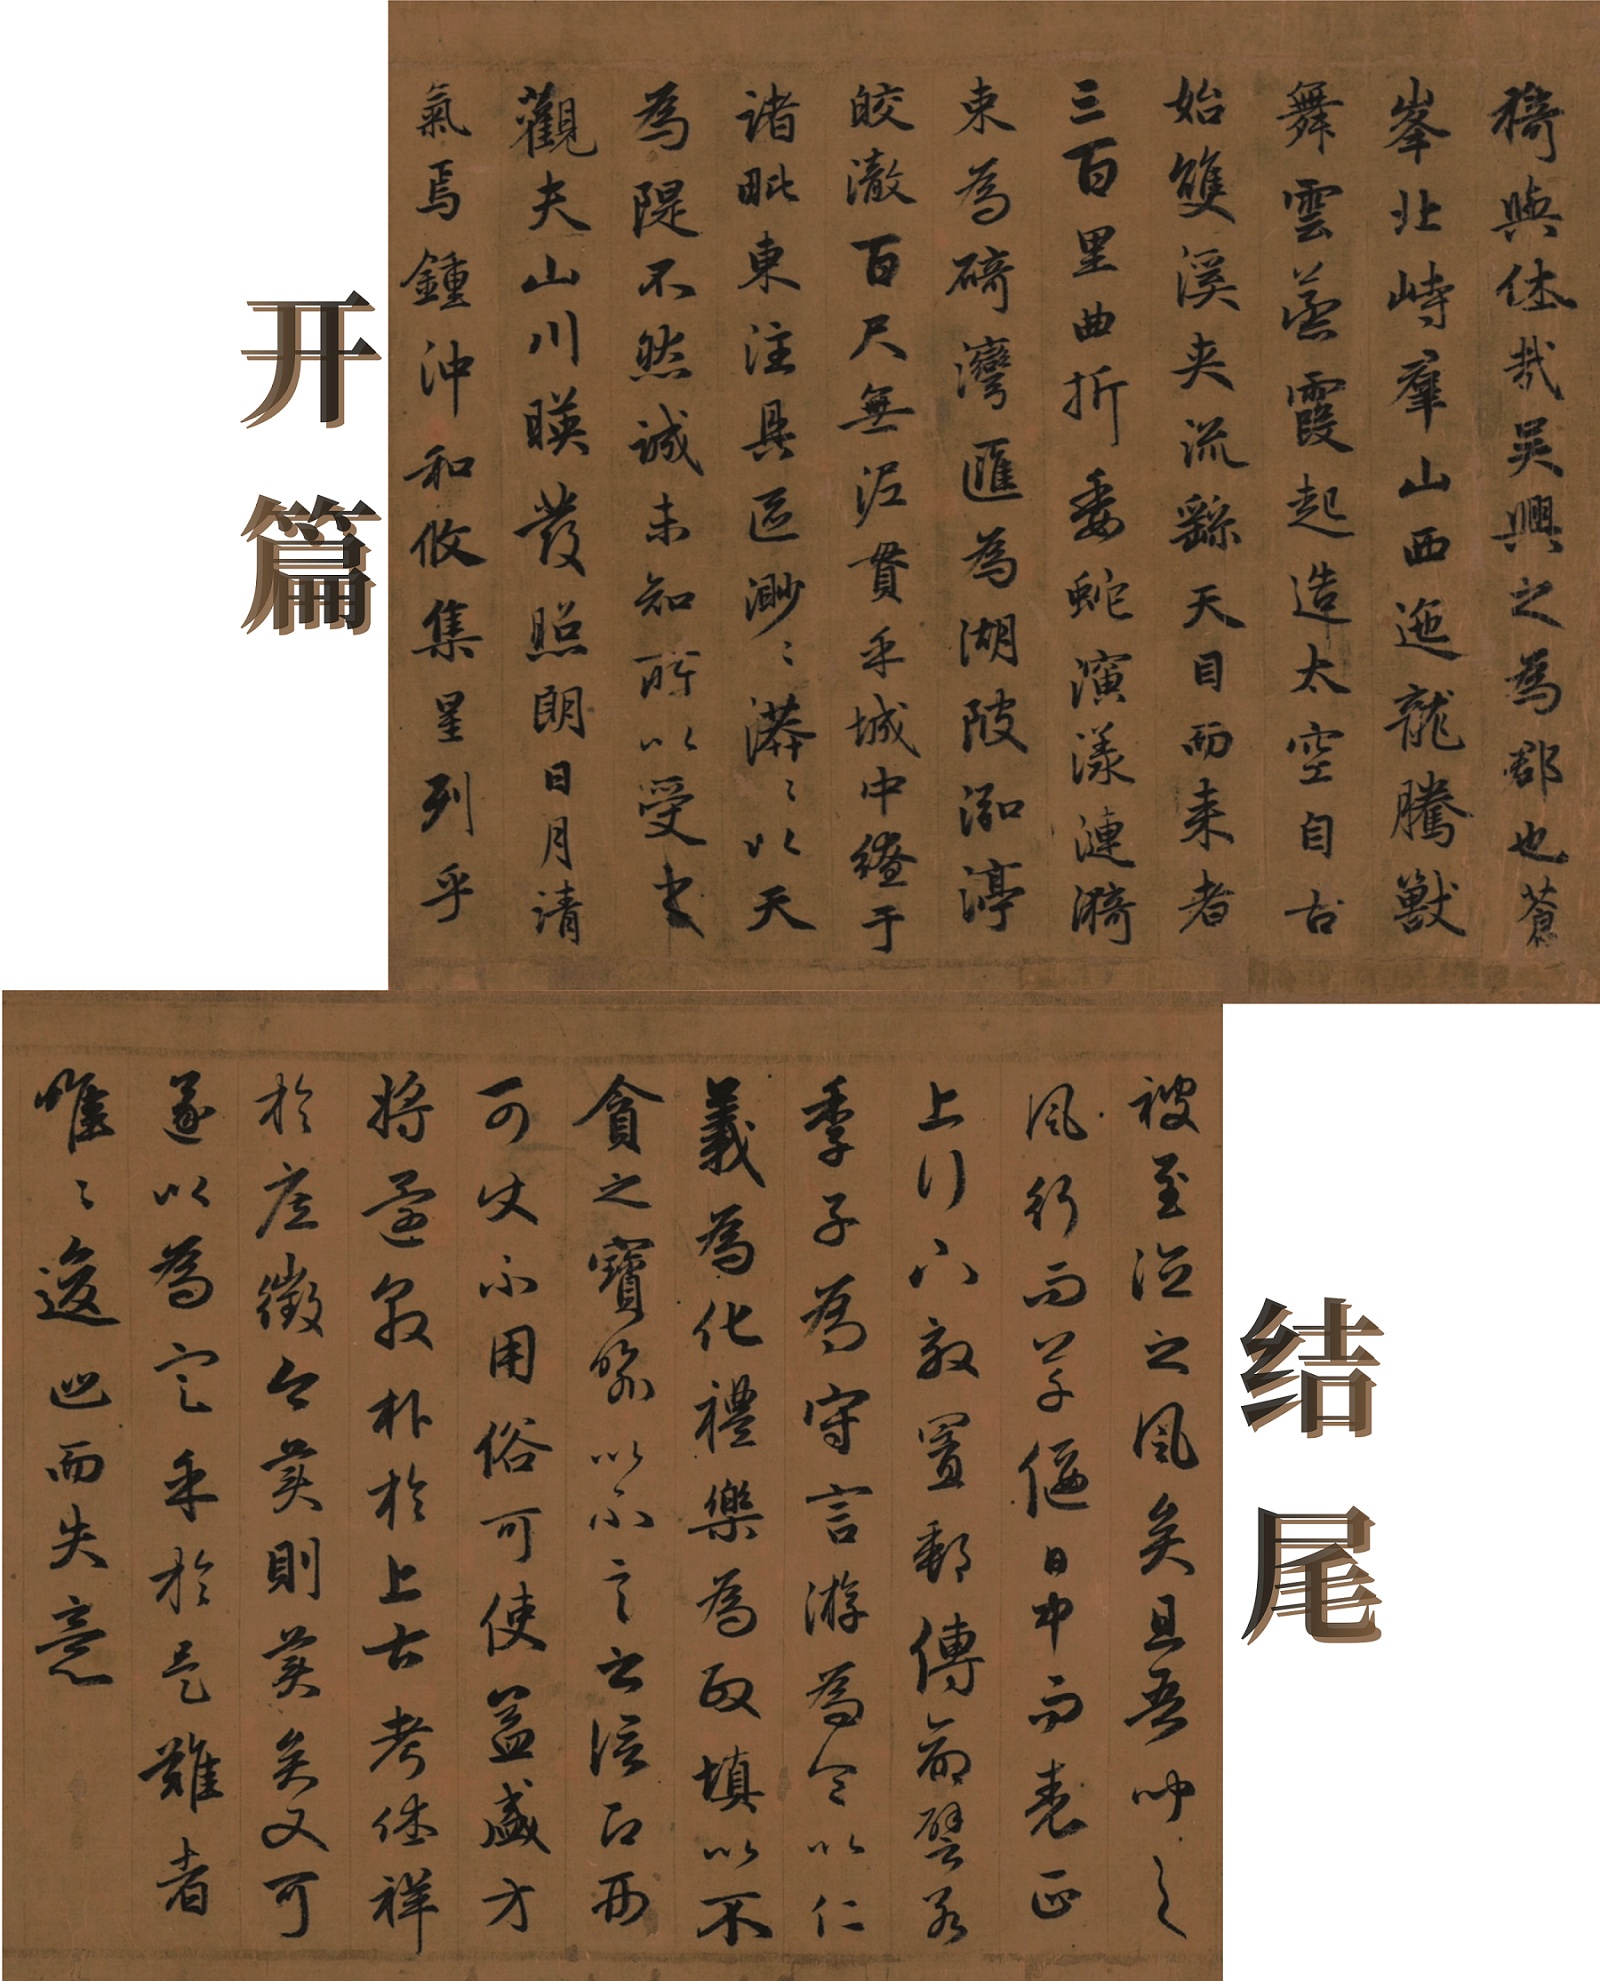 开篇
猗與休哉吴興之為郡也蒼
峯北峙羣山西迤龍騰獸
舞雲蒸霞起造太空自古
始雙溪夾流繇天目而来者
三百里曲折委蛇演漾漣漪
束為碕灣匯為湖陂泓渟
皎澈百尺無泥貫乎城中繚于
諸毗東注具區渺〻漭〻以天
為隄不然誠未知所以受之
觀夫山川暎發照朗日月清
氣焉鍾沖和攸集星列乎
结尾
被至德之風矣且吾聞之
風行而草偃日中而表正
上行下效置郵傳命譬若
季子為守言游為令以仁
義為化禮樂為政填以不
貪之寶喻以不言之信召而
可使不用俗可使益盛方
將還淳朴於上古考休祥
於庶徵令美則美矣又可
遂以為定乎於是難者
唯〻逡巡而失意